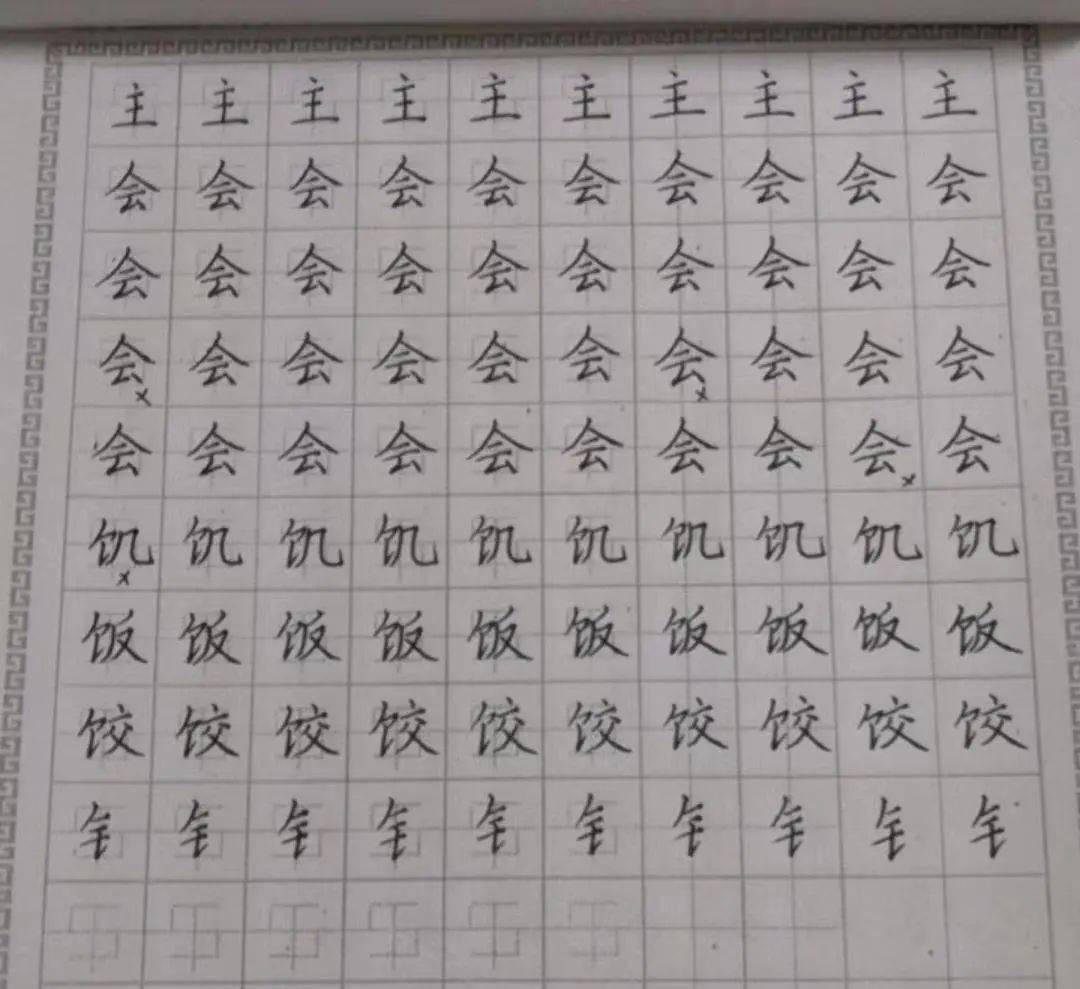 主主主主主主主主主主
会会会会会会会会会会
会会会会会会会会会会
会会会会会会会会会会
会会会会会会会会会会
饥饥饥饥饥饥饥饥饥饥
饭饭饭饭饭饭饭饭饭饭
饺饺饺饺饺饺饺饺饺饺
钅钅钅钅钅钅钅钅钅钅